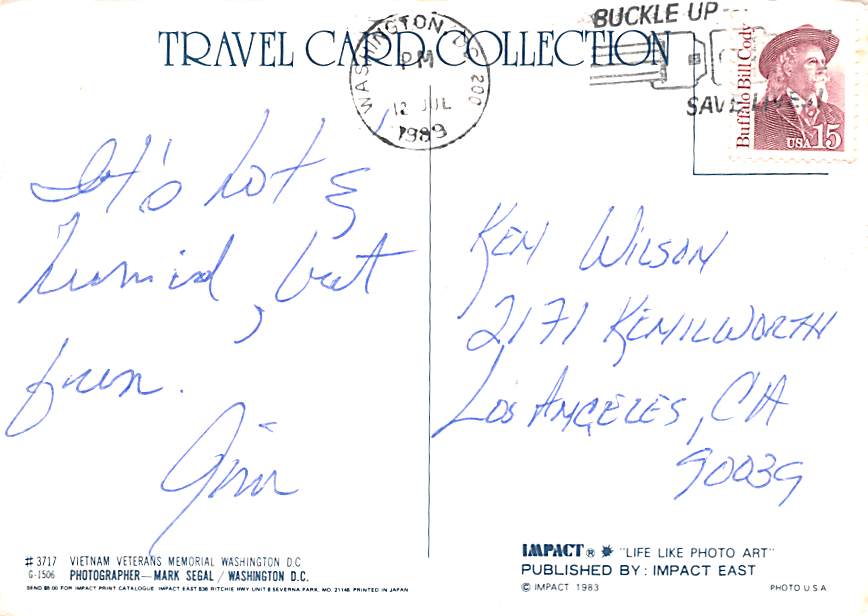 TRAVEL CARD COLLECTION
WASHINGTON, DC 200
PM
12 JUL
1989
BUCKLE UP
SAVE LIVES!
Buffalo Bill Cody
USA 15
It's hot &
humid, but
fun.
Jim
KEN WILSON
2171 KENILWORTH
LOS ANGELES, CA
90039
#3717 VIETNAM VETERANS MEMORIAL WASHINGTON D.C
G-1506 PHOTOGRAPHER—MARK SEGAL / WASHINGTON D.C.
SEND $5.00 FOR IMPACT PRINT CATALOGUE IMPACT EAST 836 RITCHIE HWY UNIT 8 SEVERNA PARK, MD. 21146 PRINTED IN JAPAN
IMPACT® "LIFE LIKE PHOTO ART"
PUBLISHED BY: IMPACT EAST
© IMPACT 1983
PHOTO U S A